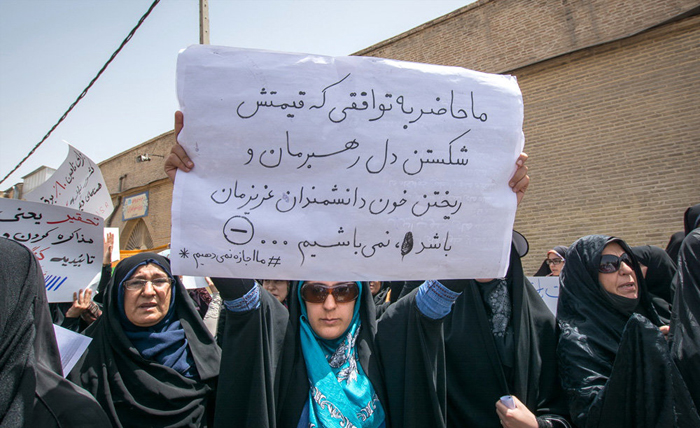 ما حاضر به توافقی که قیمتش
شکستن دل رهبرمان و
ریختن خون دانشمندان عزیزمان
باشد، نمی‌باشیم ...
#ما_اجازه_نمی‌دهیم*
تحقیر یعنی
مذاکره کردن و
تائید